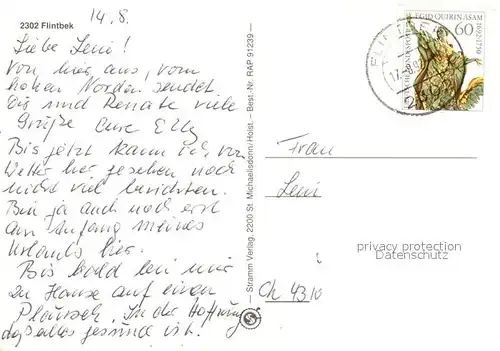 14.8.
2302 Flintbek
Liebe Leni!
Von hier aus, vom
hohen Norden sendet
Dir und Renate viele
Grüße Eure Elly
Bis jetzt kann ich, vom
Wetter hier gesehen noch
nicht viel berichten.
Bin ja auch noch erst
am Anfang meines
Urlaubs hier.
Bis bald bei mir
zu Hause auf einen
Plausch. In der Hoffnung
daß alles gesund ist.
— Stramm Verlag, 2200 St. Michaelisdonn/Holst. — Best.-Nr. RAP 91239 —
EGID QUIRIN ASAM
1692-1750
60
DEUTSCHE BUNDESPOST
FLINTBEK
Frau
Leni
privacy protection
Datenschutz
Ch 4310